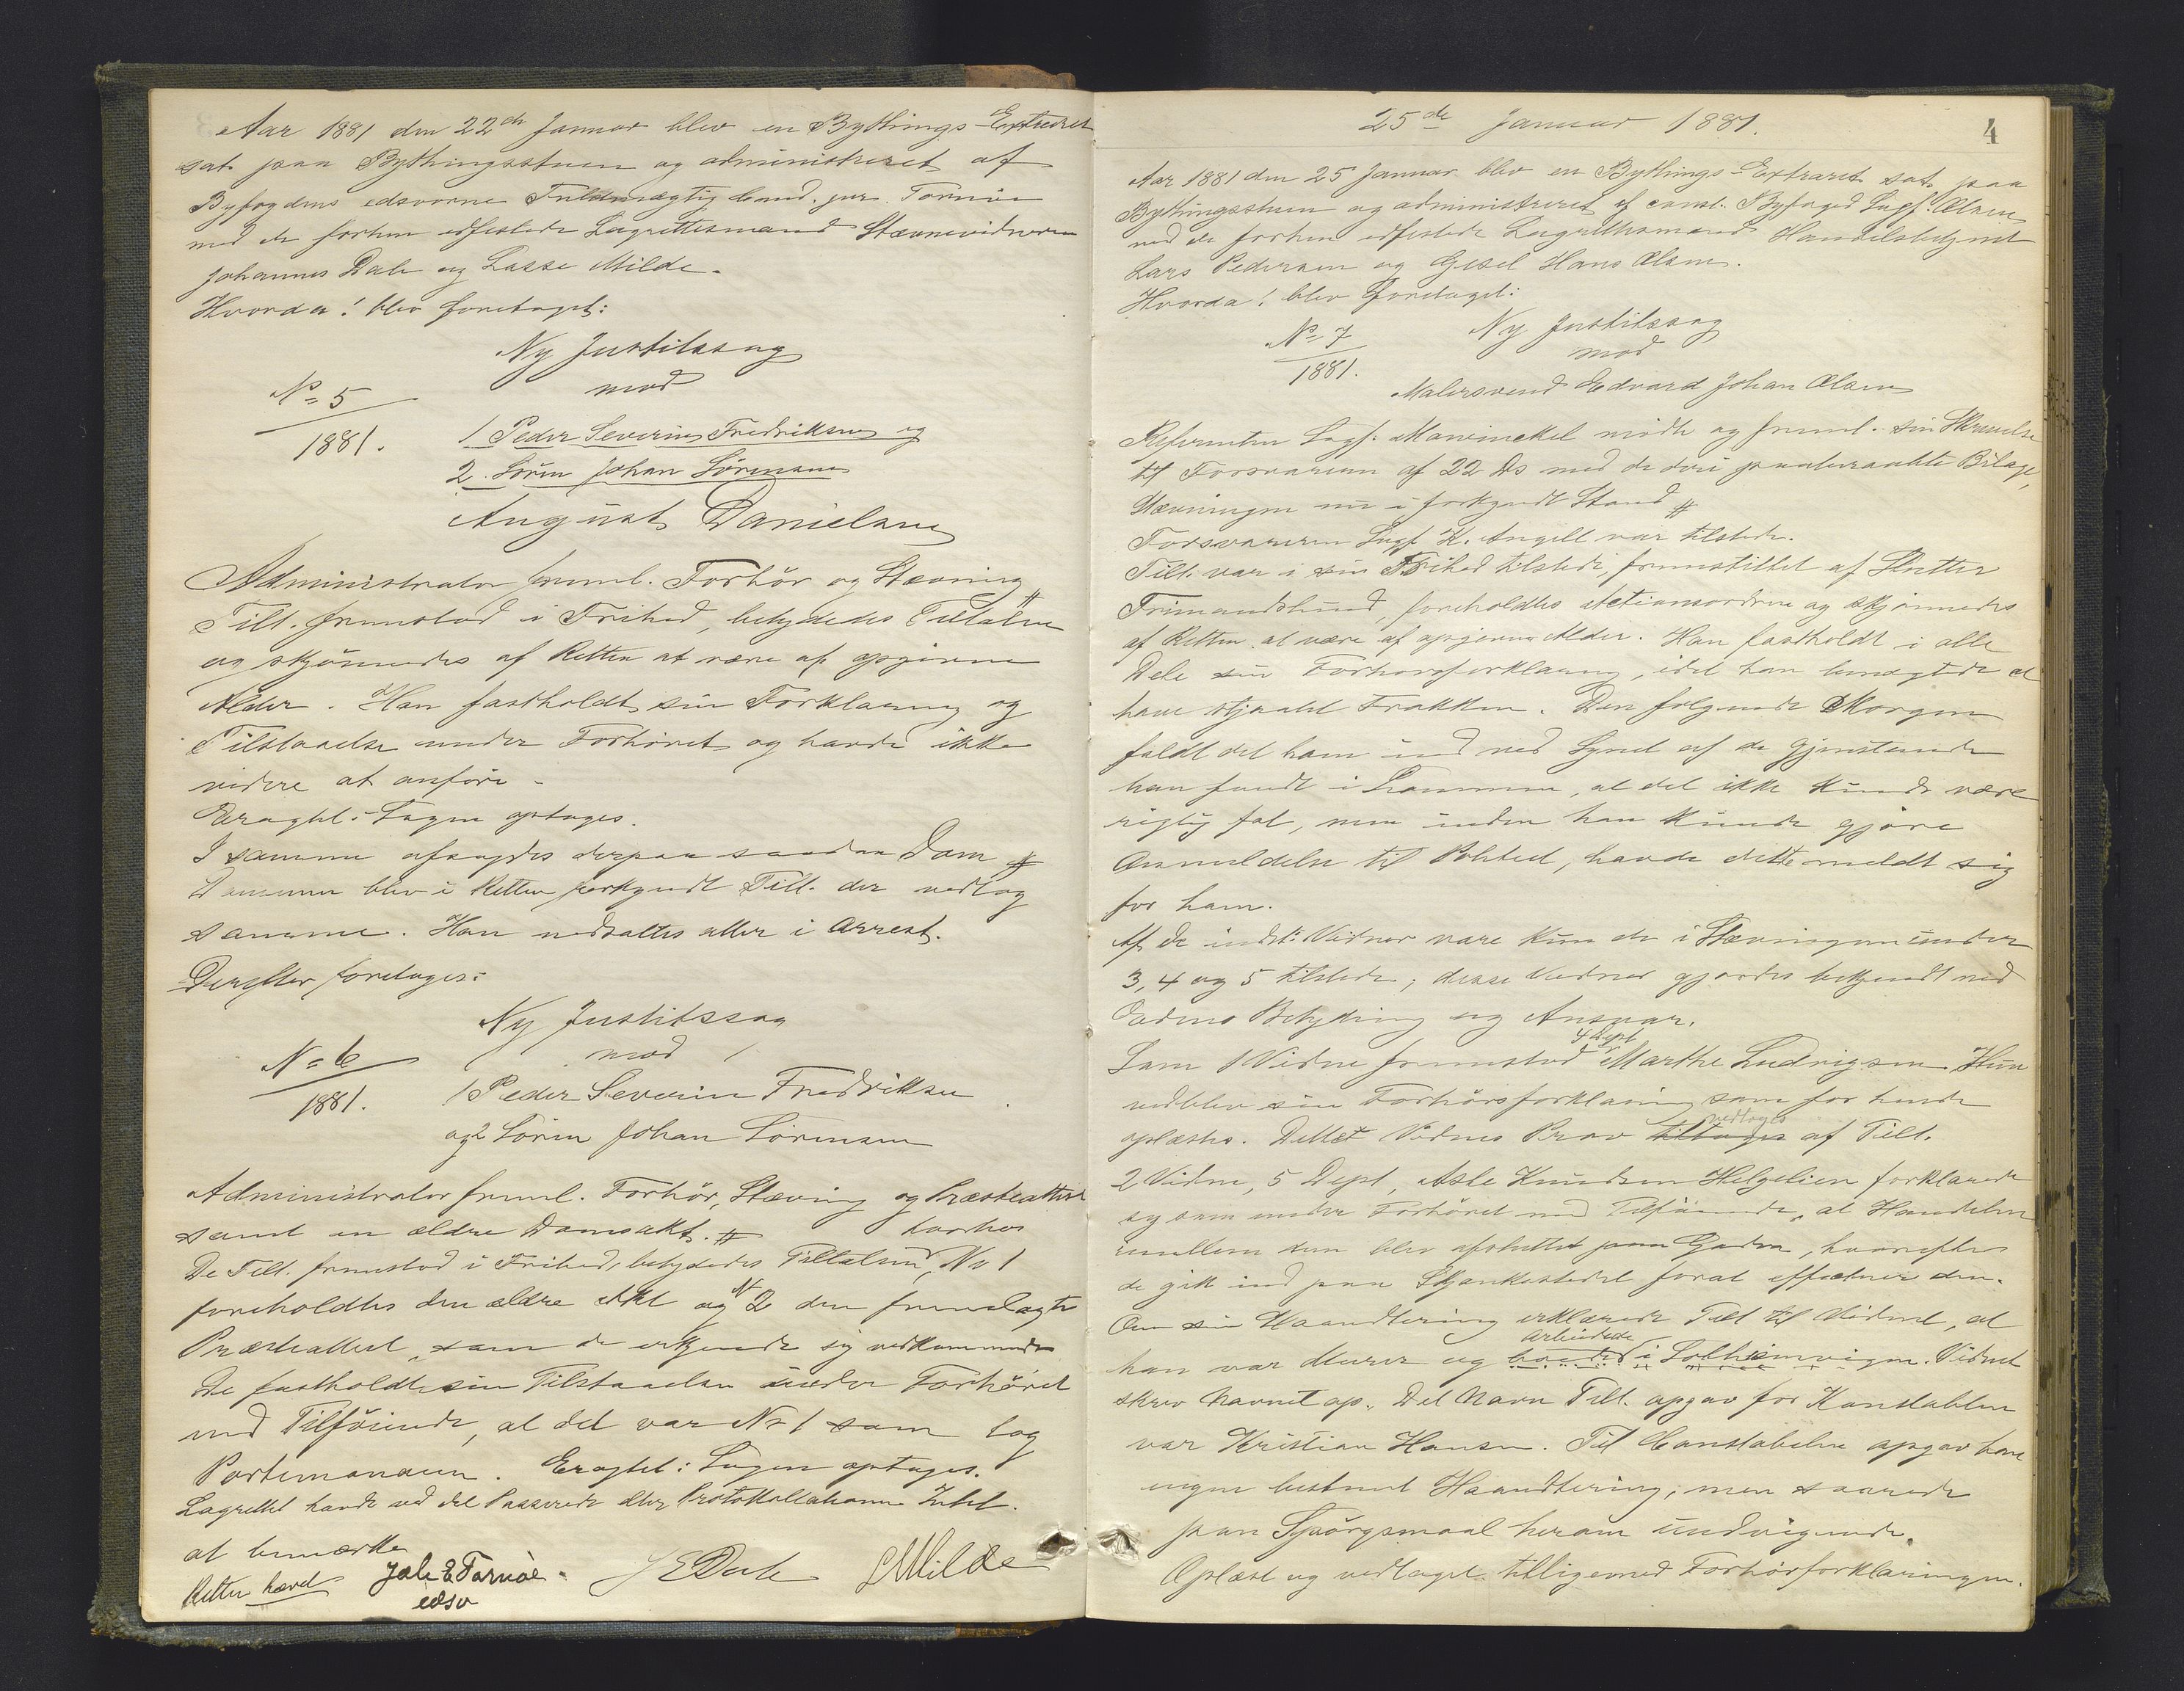 Aar 1881 den 22de Januar blev en Bythings-Extraret
sat paa Bythingsstuen og administreret af
Byfogdens edsvorne Fuldmægtig Cand. jur. Tornöe
med de forhen edfæstede Lagrettesmænd Stævnevidnerne
Johannes Dale og Lasse Milde.
Hvorda! blev foretaget:
Ny Justitssag
mod
No 5
1881.
1 Peder Severin Fredriksen og
2. Sörin Johan Sörensen
August Danielsen
Administrator freml. Forhör og Stævning #
Tilt. fremstod i Frihed, betydedes Tiltalen
og skjönnedes af Retten at være af opgiven
Alder. Han fastholdt sin Forklaring og
Tilstaaelse under Forhöret og havde ikke
videre at anföre.
Eragtet: Sagen optages.
I samme afsagdes derpaa saadan Dom #
Dommen blev i Retten forkyndt Tilt. der vedtog
samme. Han nedsattes atter i Arrest.
Derefter foretoges:
Ny Justitssag
mod
No 6
1881.
1 Peder Severin Fredriksen
og 2 Sörin Johan Sörensen
Administrator freml. Forhör, Stævning og Præsteattest
samt en ældre Domsakt. #
De Tilt. fremstod i Frihed, betydedes Tiltalen, No 1
foreholdtes den ældre Akt og No 2 den fremlagte
Præsteattest, som de erkjendte sig vedkommende
De fastholdt sin Tilstaaelse under Forhöret
med Tilföiende, at det var No 1 som tog
Portemonæen. Eragtet: Sagen optages.
Lagrettet havde ved det Passerede eller Protokollationen Intet
at bemærke
Retten hævet
Jale E Tornöe.
edsv
J E Dale
L Milde
25de Januar 1881.
4
Aar 1881 den 25 Januar blev en Bythings-Extraret sat paa
Bythingsstuen og administreret af const. Byfoged Sagf. Olsen
med de forhen edfæstede Lagrettesmænd Handelsbetjent
Lars Pedersen og Gesel Hans Olsen.
Hvorda! blev foretaget:
No 7
1881.
Ny Justitssag
mod
Malersvend Edvard Johan Olsen
Referenten Sagf. Mowinckel mödte og freml. sin Skrivelse
til Forsvareren af 22 Ds med de deri paaberaabte Bilage,
Stævningen nu i forkyndt Stand #
Forsvareren Sagf K. Angell var tilstede.
Tilt. var i sin Frihed tilstede, fremstillet af Slutter
Frimandslund, foreholdtes Actionsordren og skjönnedes
af Retten at være af opgiven Alder. Han fastholdt i alle
Dele sin Forhörsforklaring, idet han benægtede at
have stjaalet Frakken. Den fölgende Morgen
faldt det ham ind ved Synet af de Gjenstande
han fandt i Lommen, at det ikke kunde være
rigtig fat, men inden han kunde gjöre
Anmeldelse til Politiet, havde dette meldt sig
for ham.
Af de indst. Vidner vare kun de i Stævningen under
3, 4 og 5 tilstede; disse Vidner gjordes bekjendt med
Edens Betydning og Ansvar.
Som 1 Vidne fremstod 4 Dept Marthe Ludvigsen. Hun
vedblev sin Forhörsforklaring som for hende
oplæstes. Dettet Vidnes Prov tiltoges vedtoges af Tilt.
2 Vidne, 5 Dept, Asle Knudsen Helgelien forklarede
sig som under Forhöret med Tilföiende, at Handelen
imellem dem blev afsluttet paa Gaden, hvorefter
de gik ind paa Skjænkestedet forat effectuere den.
Om sin Haandtering erklærede Tilt til Vidnet, at
han var Murer og boede arbeidede i Solheimsvigen. Vidnet
skrev Navnet op. Det Navn Tilt. opgav for Konstablen
var Kristian Hansen. Til Constabelen opgav han
ingen bestemt Haandtering, men svarede
paa Spörgsmaal herom undvigende.
Oplæst og vedtaget tilligemed Forhörforklaringen.